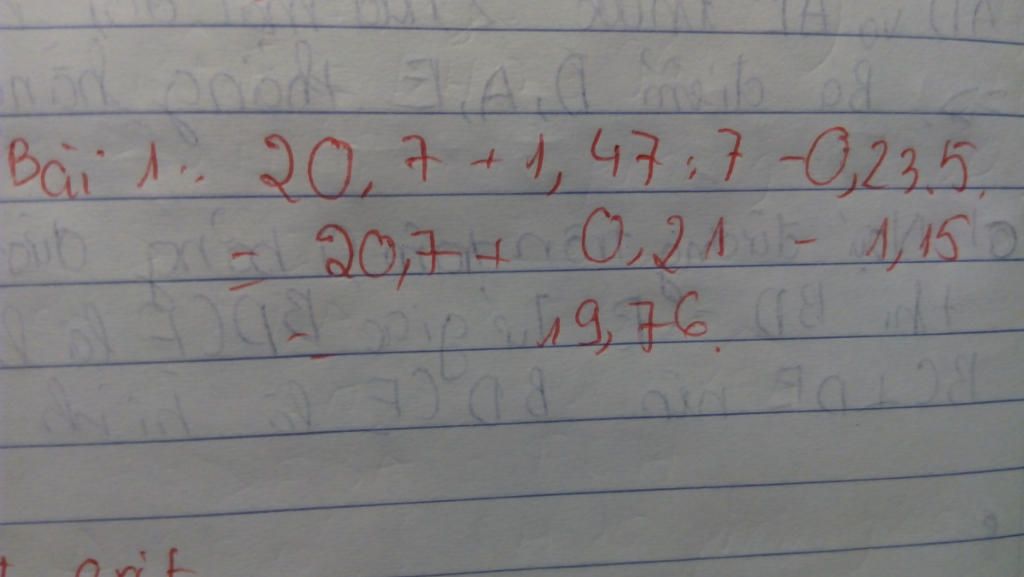 Bài 1: 20,7 + 1,47 : 7 - 0,23.5.
= 20,7 + 0,21 - 1,15
= 19,76.